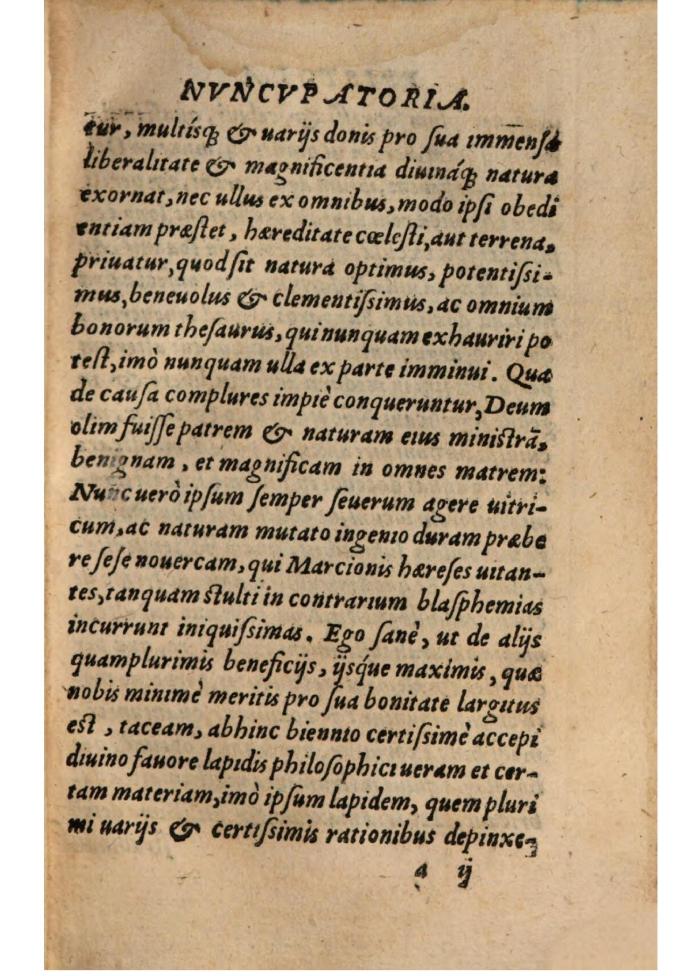 NVNCVPATORIA.
tur, multisq́; & uarijs donis pro ſua immenſa
liberalitate & magnificentia diuináq; natura
exornat, nec ullus ex omnibus, modo ipſi obedi
entiam præſtet, hæreditate cœleſti, aut terrena,
priuatur, quod ſit natura optimus, potentiſsi-
mus, beneuolus & clementiſsimus, ac omnium
bonorum theſaurus, qui nunquam exhauriri po
teſt, imò nunquam ulla ex parte imminui. Qua
de cauſa complures impiè conqueruntur, Deum
olim fuiſſe patrem & naturam eius miniſtrā,
benignam, et magnificam in omnes matrem:
Nunc uerò ipſum ſemper ſeuerum agere uitri-
cum, ac naturam mutato ingenio duram præbe
re ſeſe nouercam, qui Marcionis hæreſes uitan-
tes, tanquam ſtulti in contrarium blaſphemias
incurrunt iniquiſsimas. Ego ſanè, ut de alijs
quamplurimis beneficijs, ijsq́ue maximis, quæ
nobis minimè meritis pro ſua bonitate largitus
eſt, taceam, abhinc biennio certiſsimè accepi
diuino fauore lapidis philoſophici ueram et cer-
tam materiam, imò ipſum lapidem, quem pluri
mi uarijs & certiſsimis rationibus depinxe-
a ij